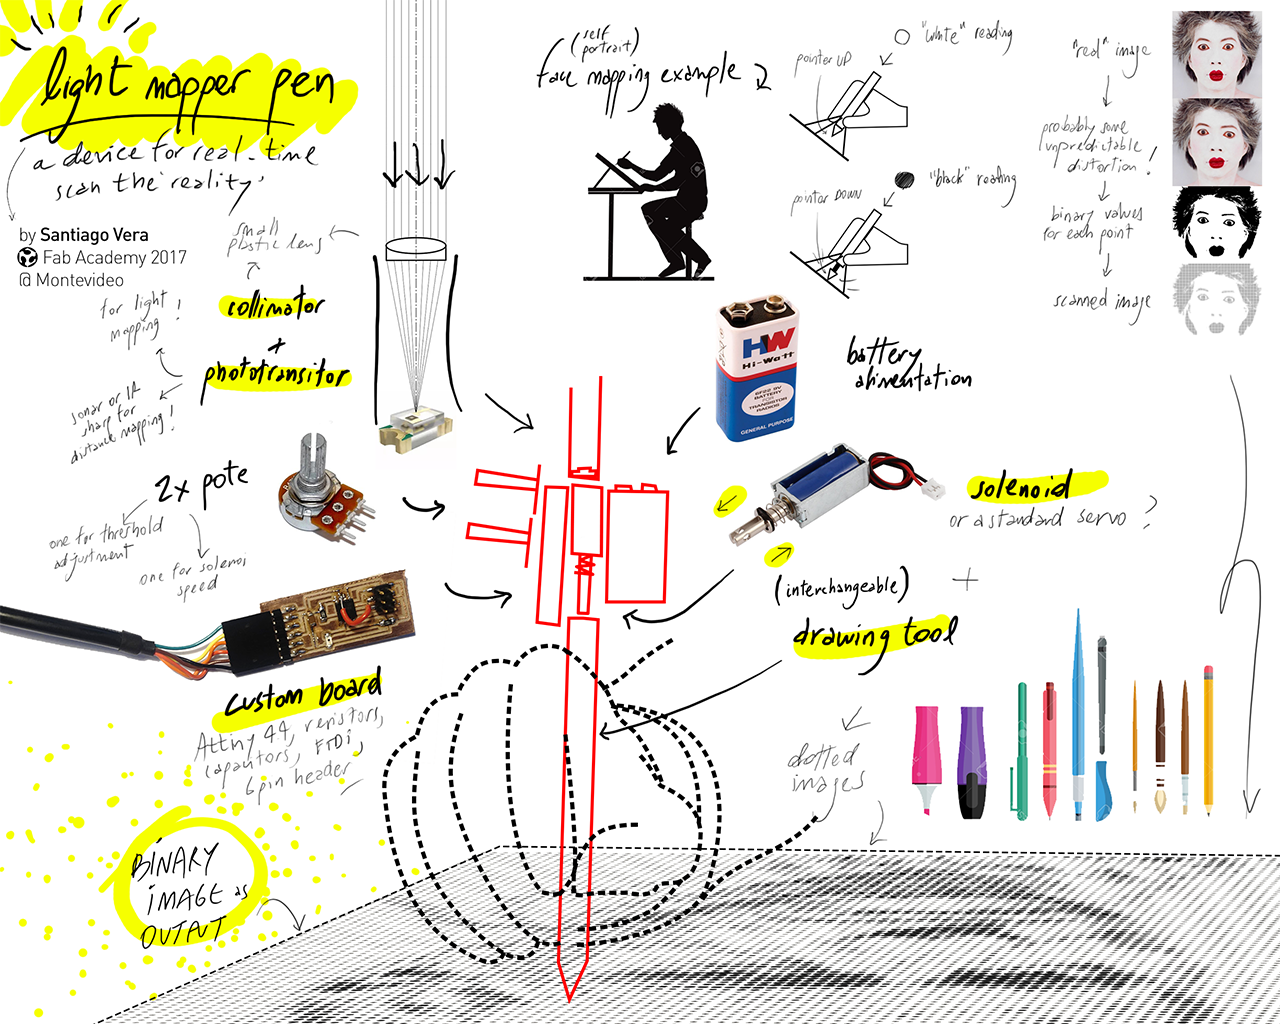 light mapper pen
a device for real-time
scan the 'reality'
by Santiago Vera
Fab Academy 2017
@ Montevideo
small
plastic lens
for light
mapping!
collimator
+
phototransitor
sonar or IR
sharp for
distance mapping!
2x pote
one for threshold
adjustment
one for solenoi
speed
custom board
Attiny 44, resistors,
capacitors, FTDI,
6pin header
BINARY
IMAGE as
OUTPUT
(self
portrait)
face mapping example
pointer UP
"white" reading
pointer DOWN
"black" reading
"real" image
probably some
unpredictable
distortion!
binary values
for each point
scanned image
HW
Hi-Watt
6F22 9V
BATTERY
FOR
TRANSISTOR
RADIOS
GENERAL PURPOSE
battery
alimentation
solenoid
or a standard servo?
+
(interchangeable)
drawing tool
dotted
images